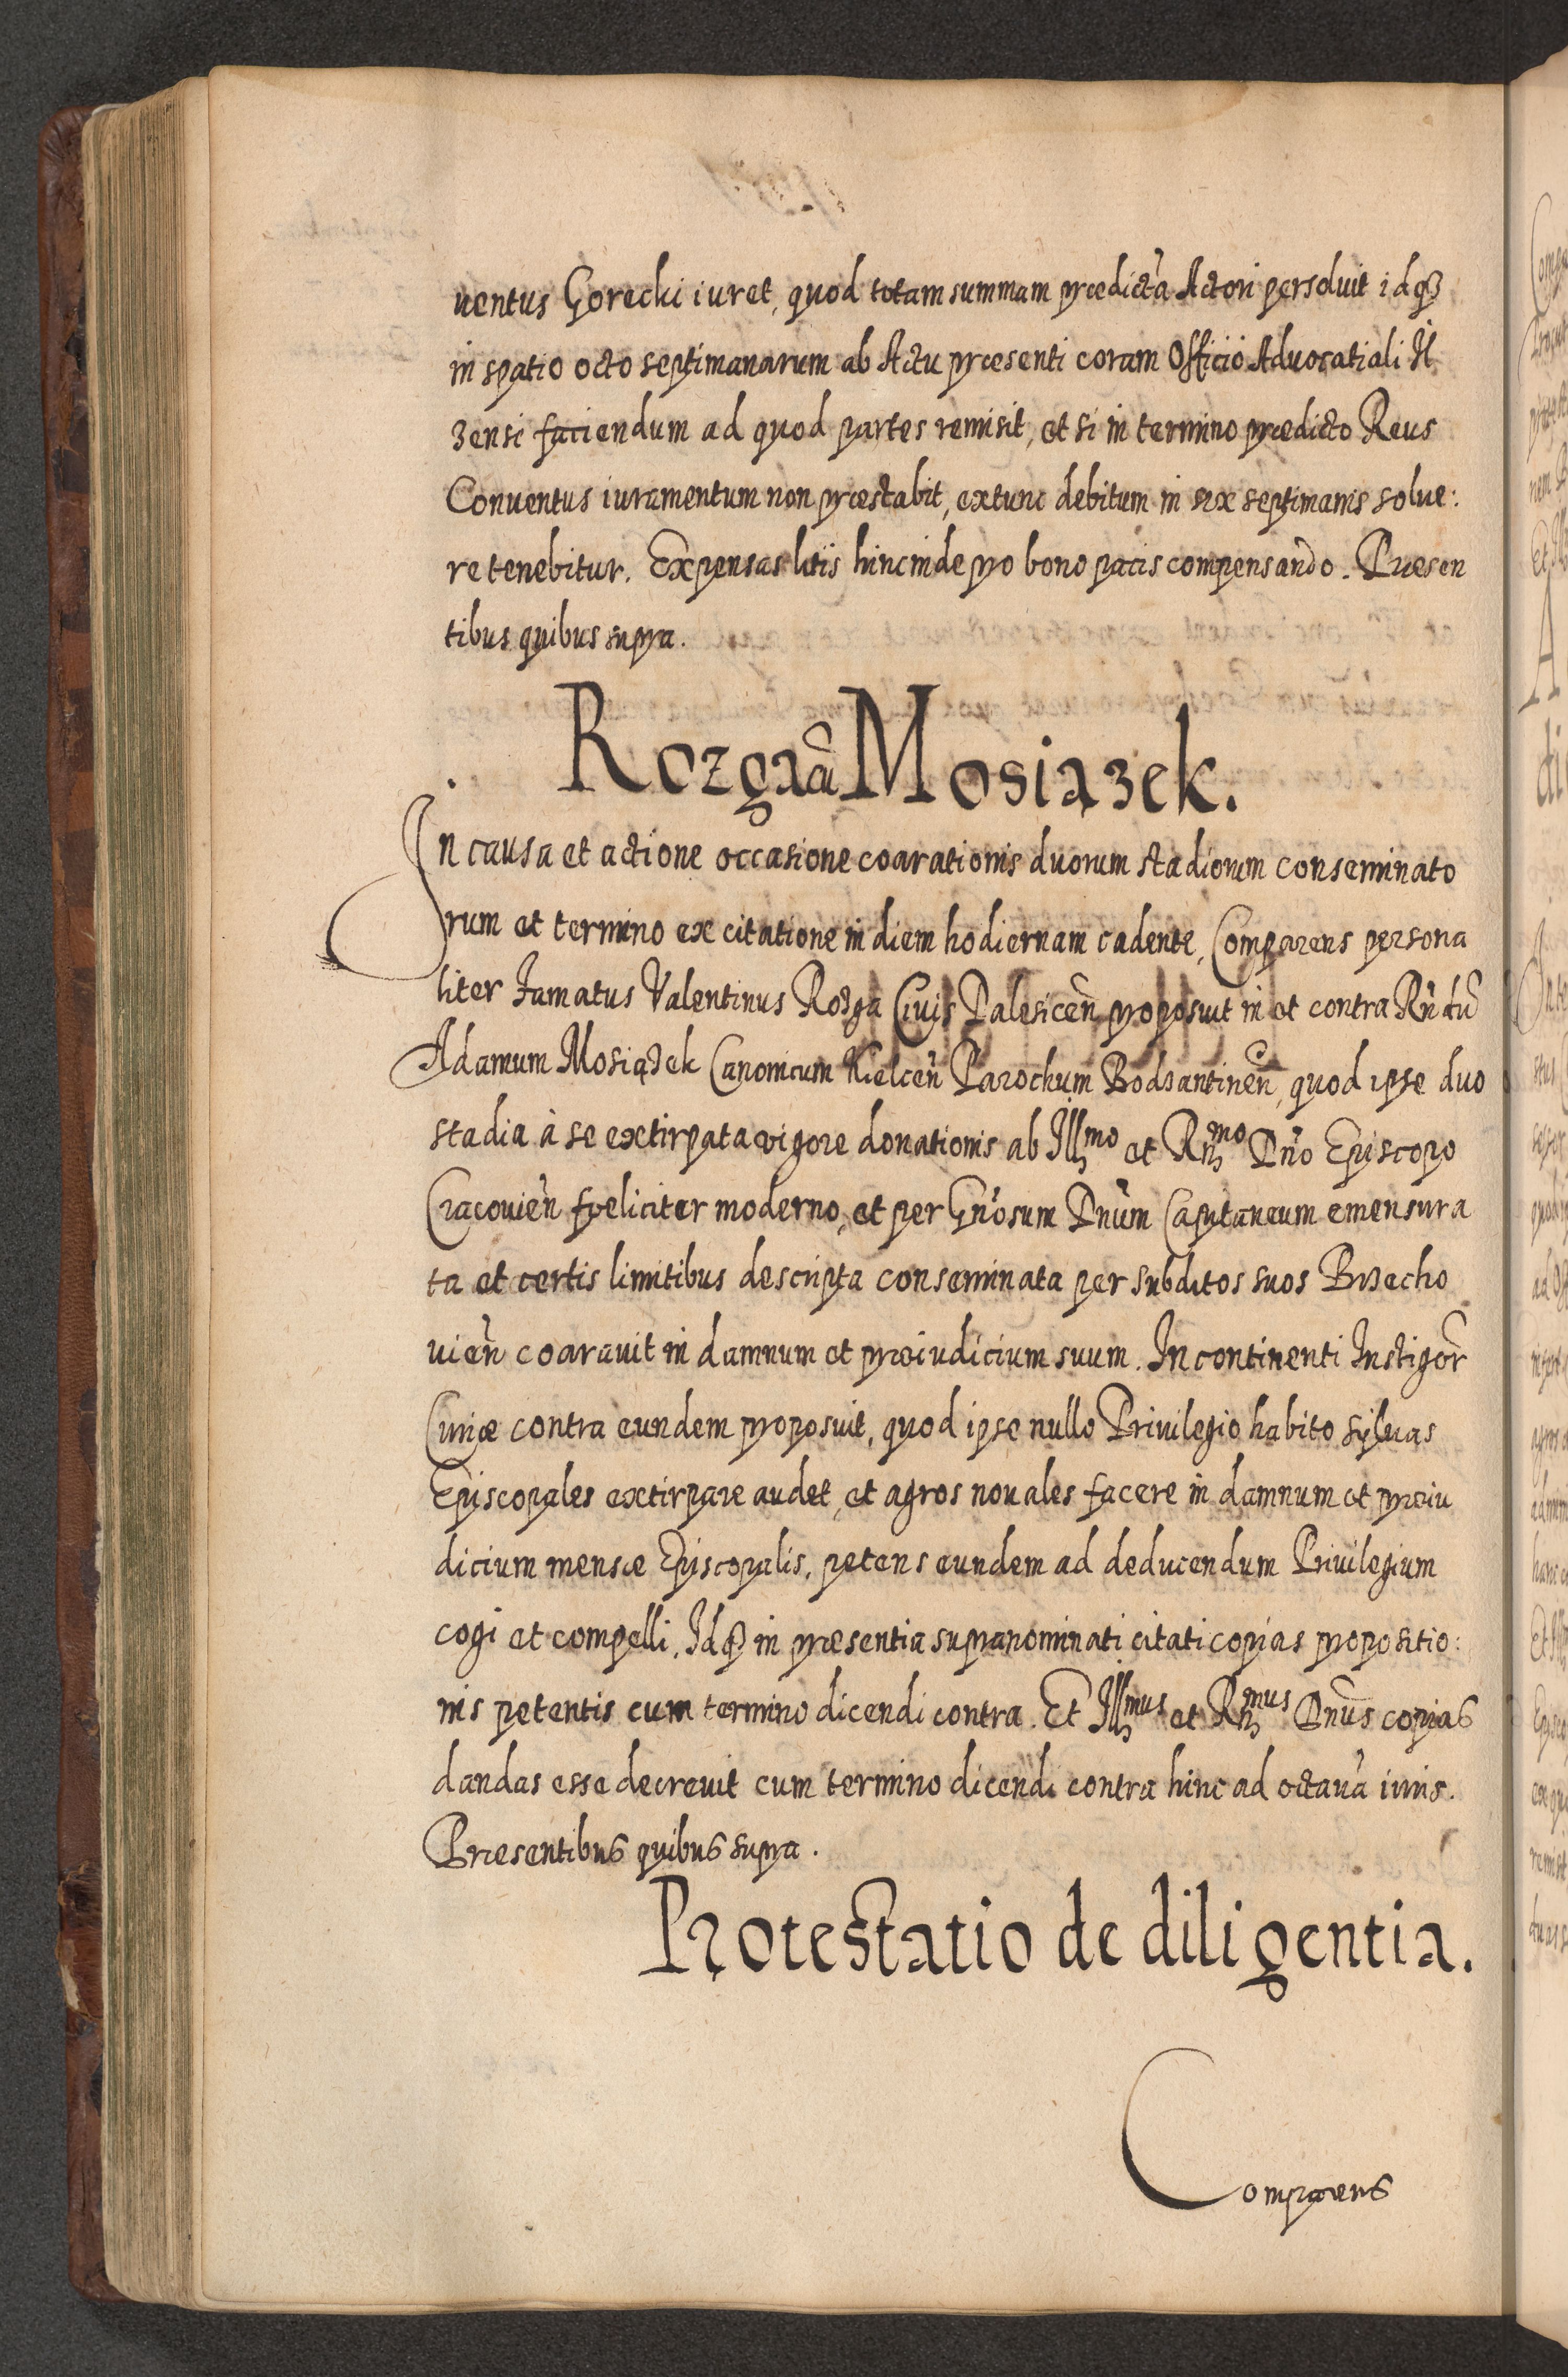 uentus Gorecki iuret, quod totam summam prædictã Actori persoluit idqȝ
in spatio octo septimanarum ab Actu præsenti coram Officio Aduocatiali Il
zensi faciendum ad quod partes remisit, et si in termino prædicto Reus
Conuentus iuramentum non præstabit, extunc debitum in sex septimanis solue:
re tenebitur. Expensas litis hincinde pro bono pacis compensando. Præsen
tibus quibus supra.
Rozga cũ Mosiązek.
In causa et actione occasione coarationis duorum stadiorum conseminato
rum et termino ex citatione in diem hodiernam cadente, Comparens persona
liter famatus Valentinus Rozga Ciuis Dalesiceñ proposuit in et contra Rñdũ
Adamum Mosiązek Canonicum Kielceñ Parochum Bodzantineñ, quod ipse duo
stadia à se extirpata vigore donationis ab Illmo et Rmo Dño Episcopo
Cracouieñ fœliciter moderno, et per Gñosum Dnũm Capitaneum emensura
ta et certis limitibus descripta conseminata per subditos suos Brzecho
uieñ coarauit in damnum et præiudicium suum. In continenti Instigor̃
Curiæ contra eundem proposuit, quod ipse nullo Priuilegio habito syluas
Episcopales extirpare audet, et agros nouales facere in damnum et præiu
dicium mensæ Episcopalis, petens eundem ad deducendum Priuilegium
cogi et compelli. Idqȝ in præsentia supranominati citati copias propositio:
nis petentis cum termino dicendi contra. Et Illmus et Rmus Dnũs copias
dandas esse decreuit cum termino dicendi contra hinc ad octauã iuris.
Præsentibus quibus supra.
Protestatio de diligentia.
Comparens